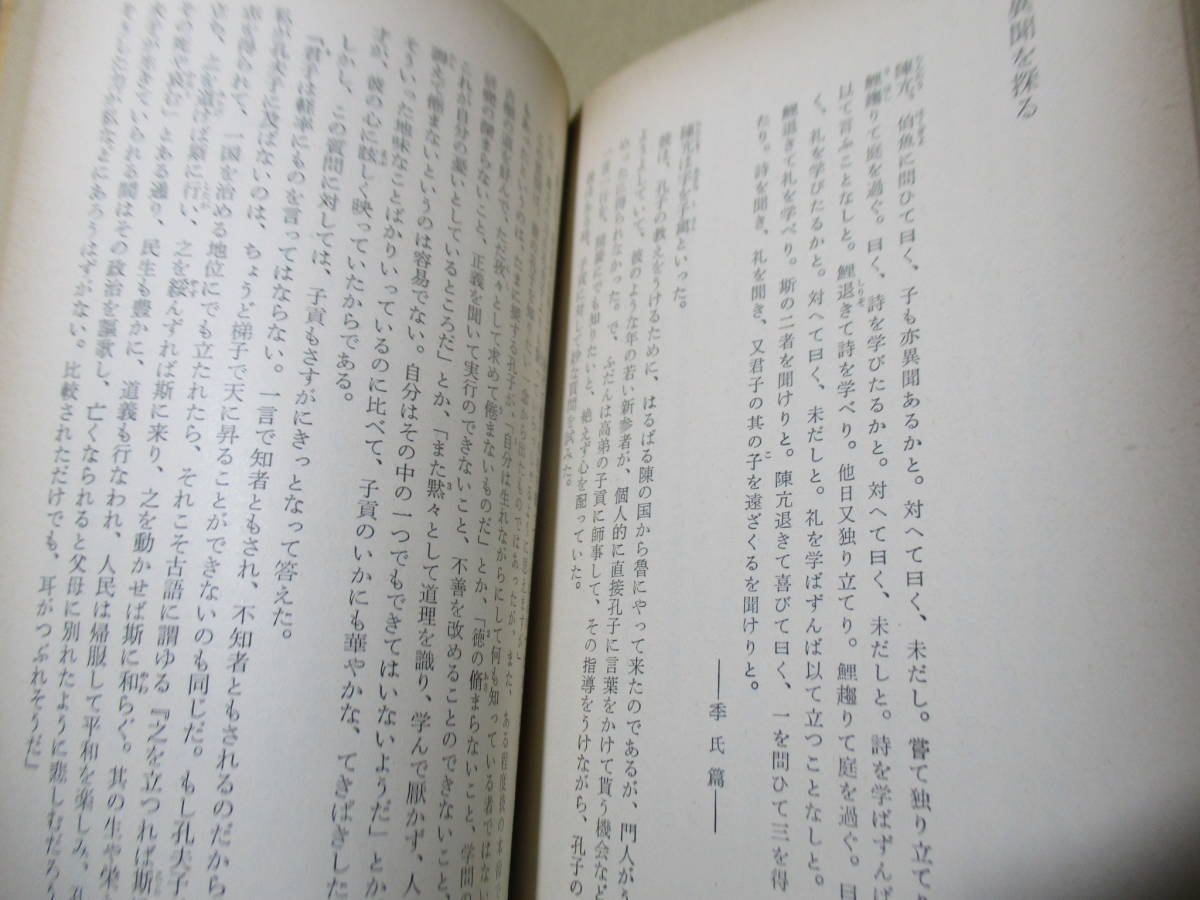 異聞を探る
陳亢、伯魚に問ひて曰く、子も亦異聞あるかと。対へて曰く、未だし。嘗て独り立てり
鯉趨りて庭を過ぐ。曰く、詩を学びたるかと。対へて曰く、未だしと。詩を学ばずんば
以て言ふことなしと。鯉退きて詩を学べり。他日又独り立てり。鯉趨りて庭を過ぐ。曰
く、礼を学びたるかと。対へて曰く、未だしと。礼を学ばずんば以て立つことなしと。
鯉退きて礼を学べり。斯の二者を聞けりと。陳亢退きて喜びて曰く、一を問ひて三を得
たり。詩を聞き、礼を聞き、又君子の其の子を遠ざくるを聞けりと。
――季氏篇――
陳亢は字を子禽といった。
彼は、孔子の教えをうけるために、はるばる陳の国から魯にやって来たのであるが、門人がう
ようよしていて、彼のような年の若い新参者が、個人的に直接孔子に言葉をかけて貰う機会など
めったに得られなかった。で、ふだんは高弟の子貢に師事して、その指導をうけながら、孔子の
一言一行を、間接にでも知りたいと、絶えず心を配っていた。
に対して妙な質問を試みた。
というのは、たまに接する孔子が、「自分は生れながらにして何も知っている者ではない
古聖の道を好んで、ただ孜々として求めて倦まないものだ」とか、「徳の脩まらないこと、学問の
研究の深まらないこと、正義を聞いて実行のできないこと、不善を改めることのできないこと、
これが自分の憂いとしているところだ」とか、「また黙々として道理を識り、学んで厭かず、人
誨えて倦まないというのは容易でない。自分はその中の一つでもできてはいないようだ」とか
そういった地味なことばかりいっているのに比べて、子貢のいかにも華やかな、てきぱきした
が、彼の心に眩しく映っていたからである。
しかし、この質問に対しては、子貢もさすがにきっとなって答えた。
「君子は軽率にものを言ってはならない。一言で知者ともされ、不知者ともされるのだから
私が孔夫子に及ばないのは、ちょうど梯子で天に昇ることができないのも同じだ。もし孔夫子
志を得られて、一国を治める地位にでも立たれたら、それこそ古語に謂ゆる『之を立つれば斯
立ち、之を道けば斯に行い、之を綏んずれば斯に来り、之を動かせば斯に和らぐ。其の生や栄
その死や哀む』とある通り、民生も豊かに、道義も行なわれ、人民は帰服して平和を楽しみ、孔
夫子が生きていられる間はその政治を謳歌し、亡くなられると父母に別れたように悲しむだろう
そうした方が私などにあろうはずがない。比較されただけでも、耳がつぶれそうだ」